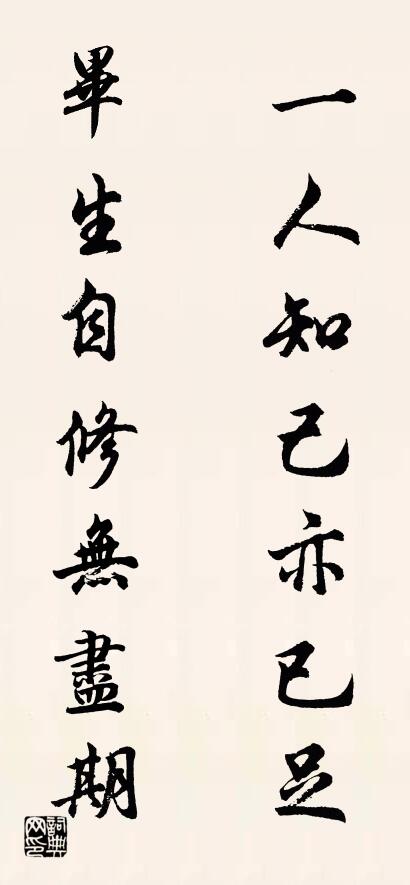 一人知己亦已足
畢生自修無盡期
詞典網印